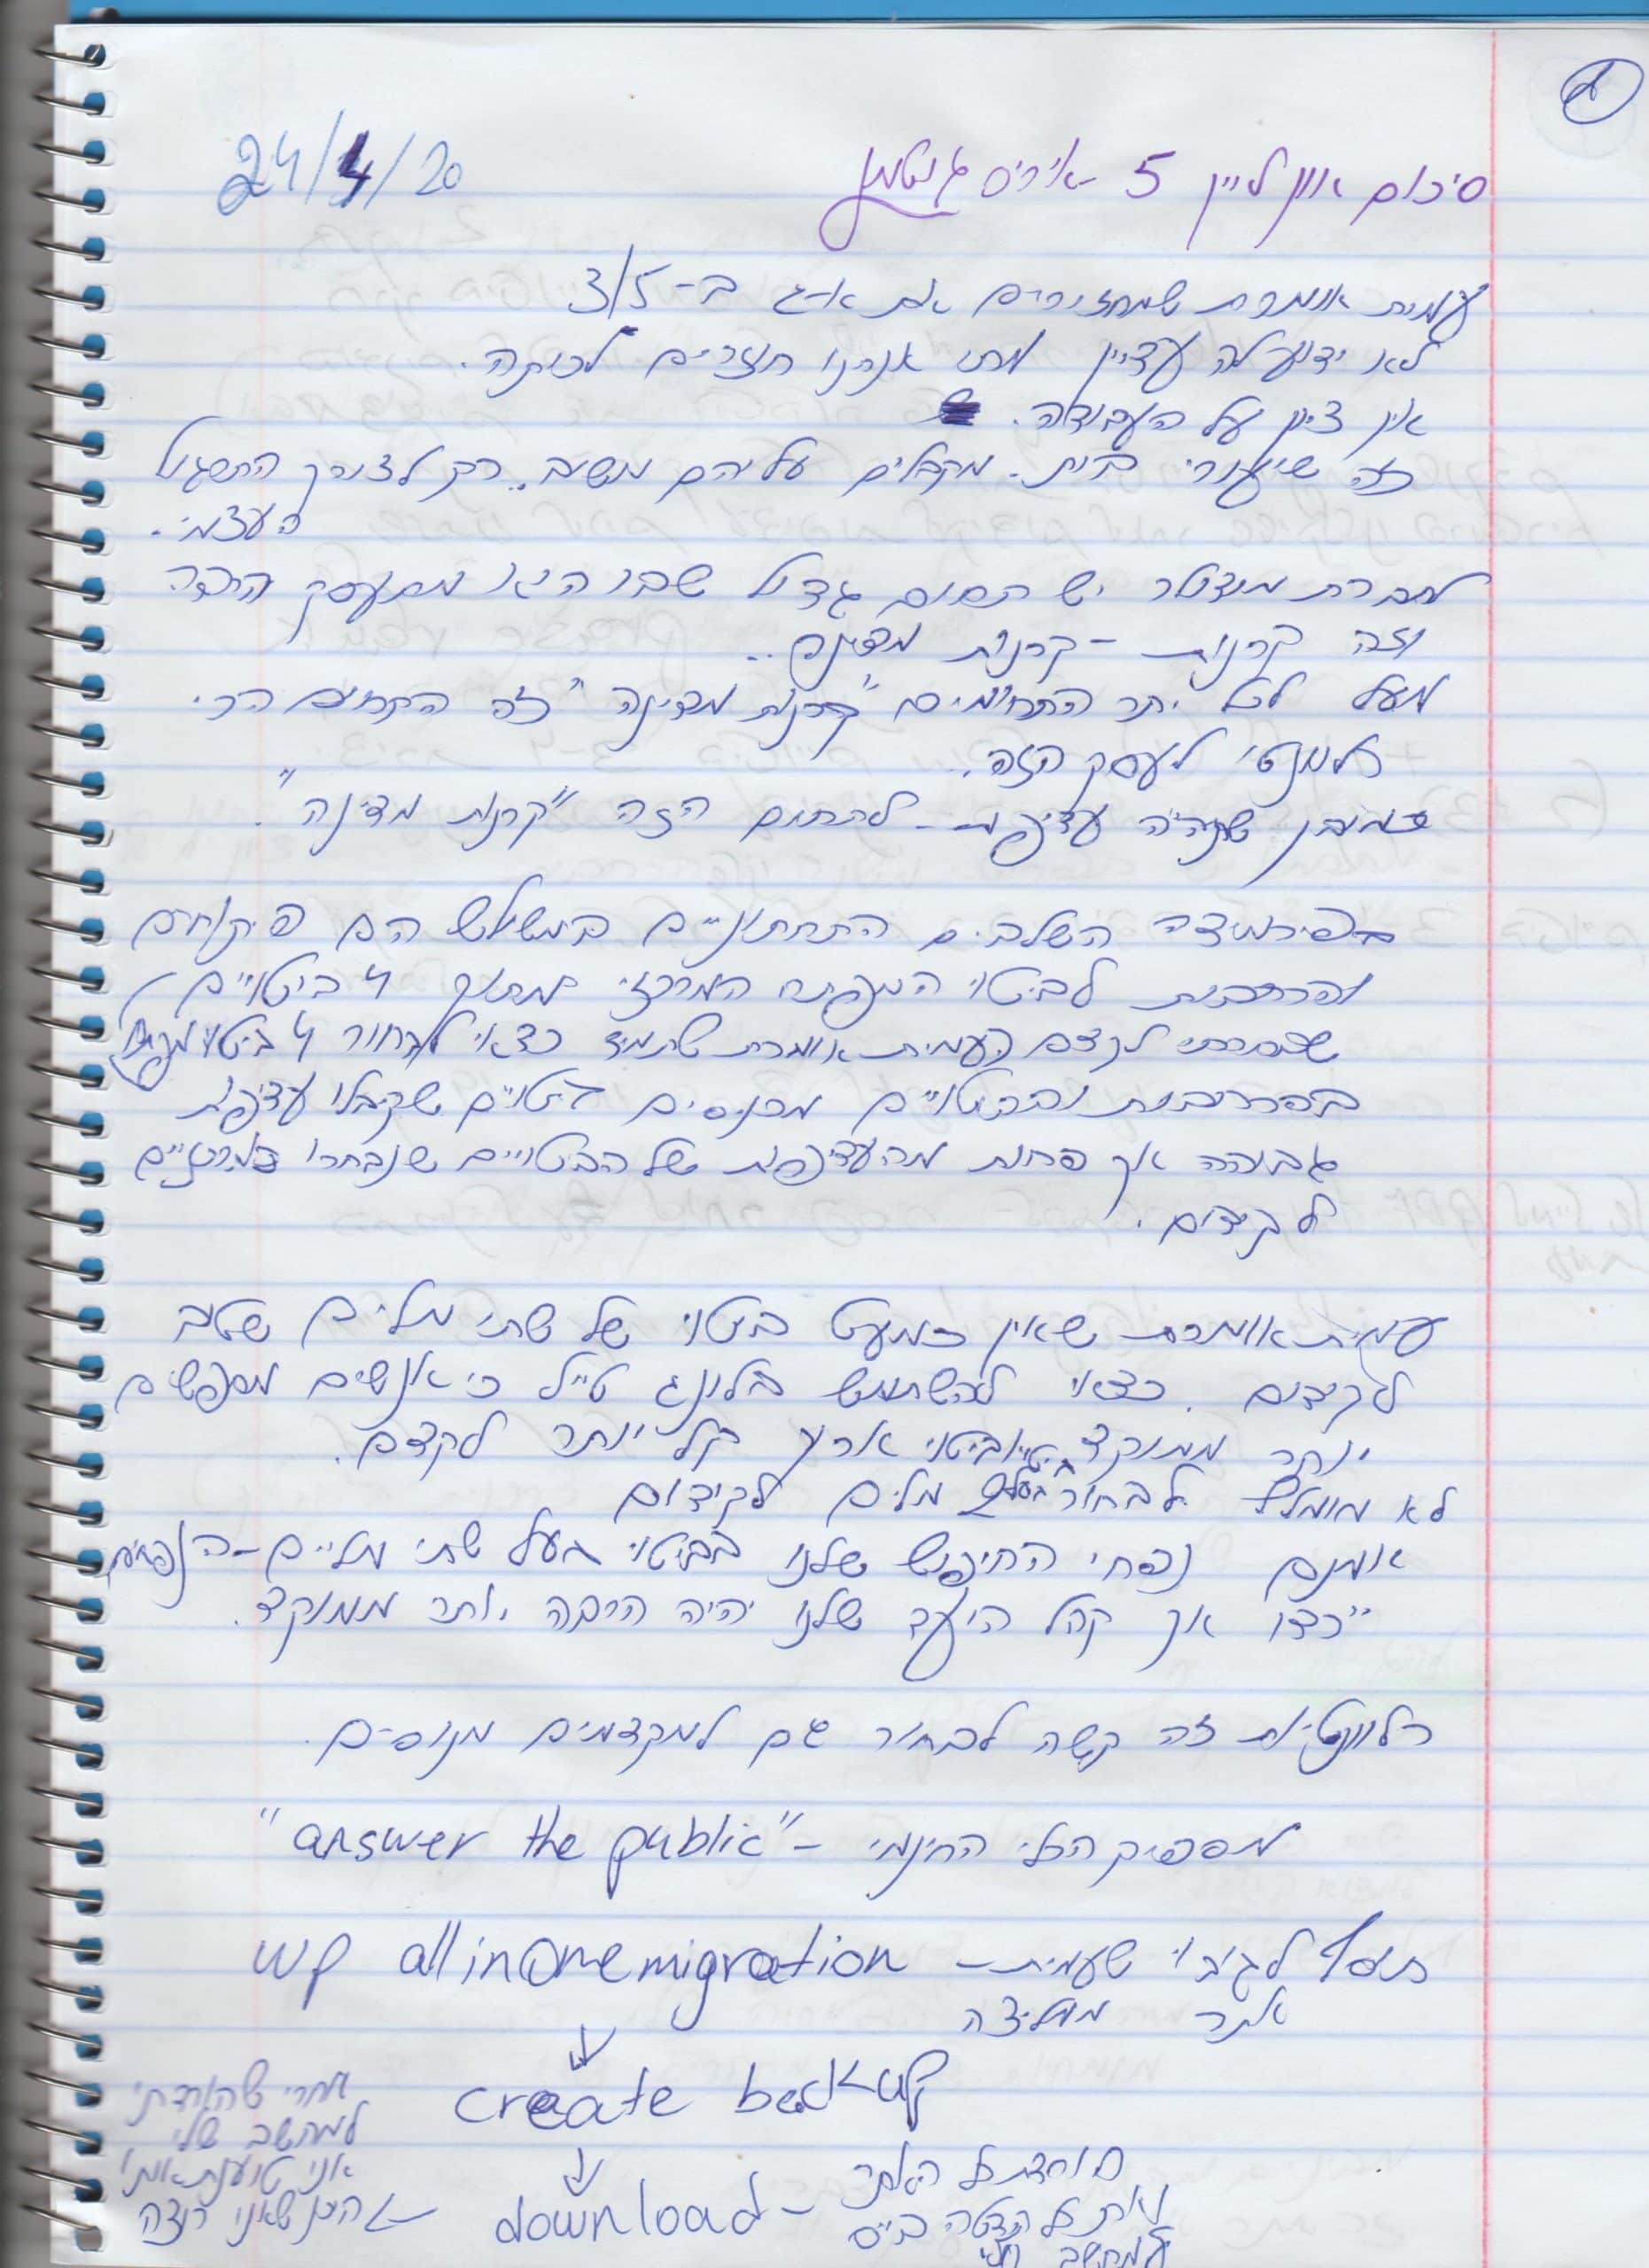 1
24/4/20
סיכום און ליין 5 - איריס גוטמן
עמית אומרת שמחזירים את א-ג ב- 3/5
לא ידוע לה עדיין מתי אנחנו חוזרים לכיתה.
אין ציון על העבודה.
זה שיעורי בית. מקבלים עליהם משוב.. רק לצורך התרגול
העצמי.
לחברת מיצטר יש תחום גדול שבו היא מתעסקת הרבה
וזה קרנות - קרנות מדינה..
מעל לכל יתר התחומים "קרנות מדינה" זה התחום הכי
רלוונטי לעסק הזה.
כמובן שתהיה עדיפות לתחום הזה "קרנות מדינה".
בפירמידה השלבים התחתוניים במשולש הם פיתוחים
והרחבות לביטוי המפתח המרכזי מתוך 4 ביטויים
שבחרתי לקדם עמית אומרת שתמיד כדאי לבחור 4 ביטויי מפתח
בהרחבות ובביטויים מכניסים ביטויים שקיבלו עדיפות
גבוהה אך פחות מהעדיפות של הביטויים שנבחרו כמרכזיים
לקידום.
עמית אומרת שאין כמעט ביטוי של שתי מלים שטוב
לקידום. כדאי להשתמש בלונג טייל כי אנשים מחפשים
יותר ממוקד וביטוי ארוך קל יותר לקדם.
לא מומלץ לבחור ביטוי בעל 2 מלים לקידום
אומנם נפחי החיפוש שלנו בביטוי בעל שתי מליים - הנפחים
יירדו אך קהל היעד שלנו יהיה הרבה יותר ממוקד.
רלוונטיות זה קשה לבחור גם למקדמים מנוסים.
מספיק הכלי החינמי - "answer the public"
תוסף לגיבוי שעמית - wp all in one migration
אתר מורידה
↓
create backup
↓
download - מורידה כל האתר
ואת כל הדטה בייס
למחשב שלי
אחרי שהורדתי
למחשב שלי
אני טוענת אותו
היכן שאני רוצה